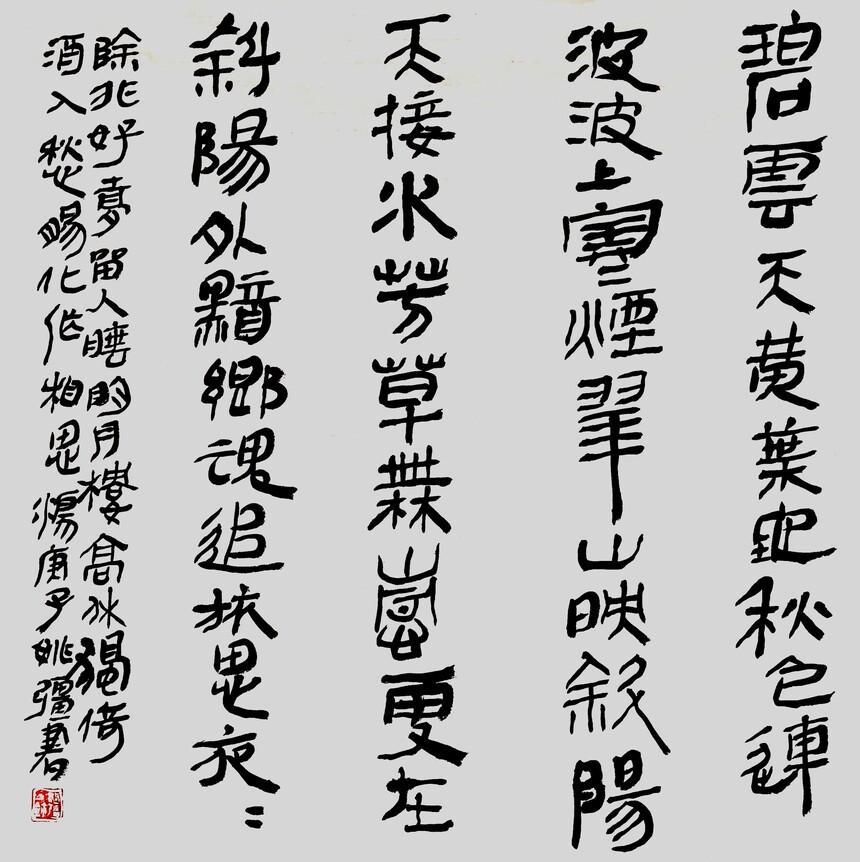 碧雲天黄葉地秋色連
波波上寒煙翠山映斜陽
天接水芳草無更在
斜陽外黯鄉魂追旅思夜〻
除非好夢留人睡明月樓高休獨倚
酒入愁腸化作相思庚子姚彊書